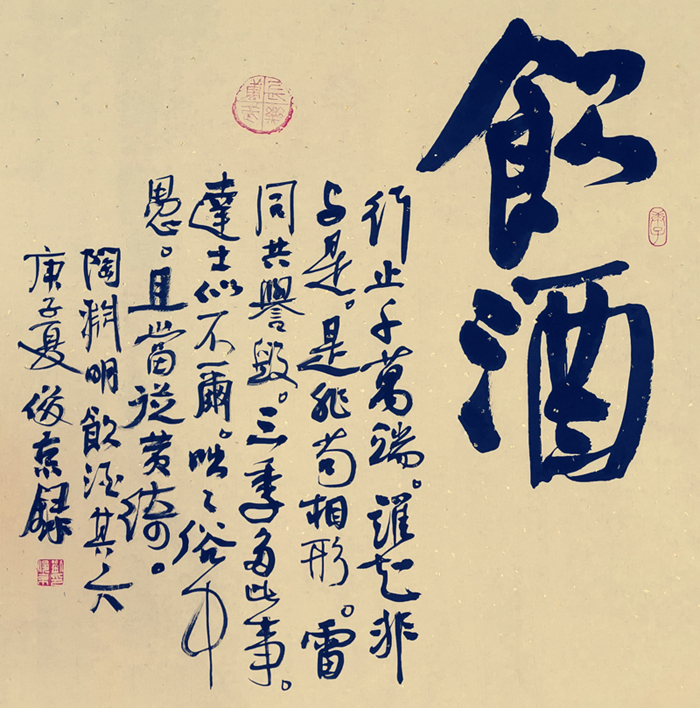 飲酒
庚子
行止千萬端。誰知非
与是。是非苟相形。雷
同共譽毀。三季多此事。
達士似不爾。咄〻俗中
愚。且當從黄綺。
陶淵明飲酒其六
庚子夏俊京録